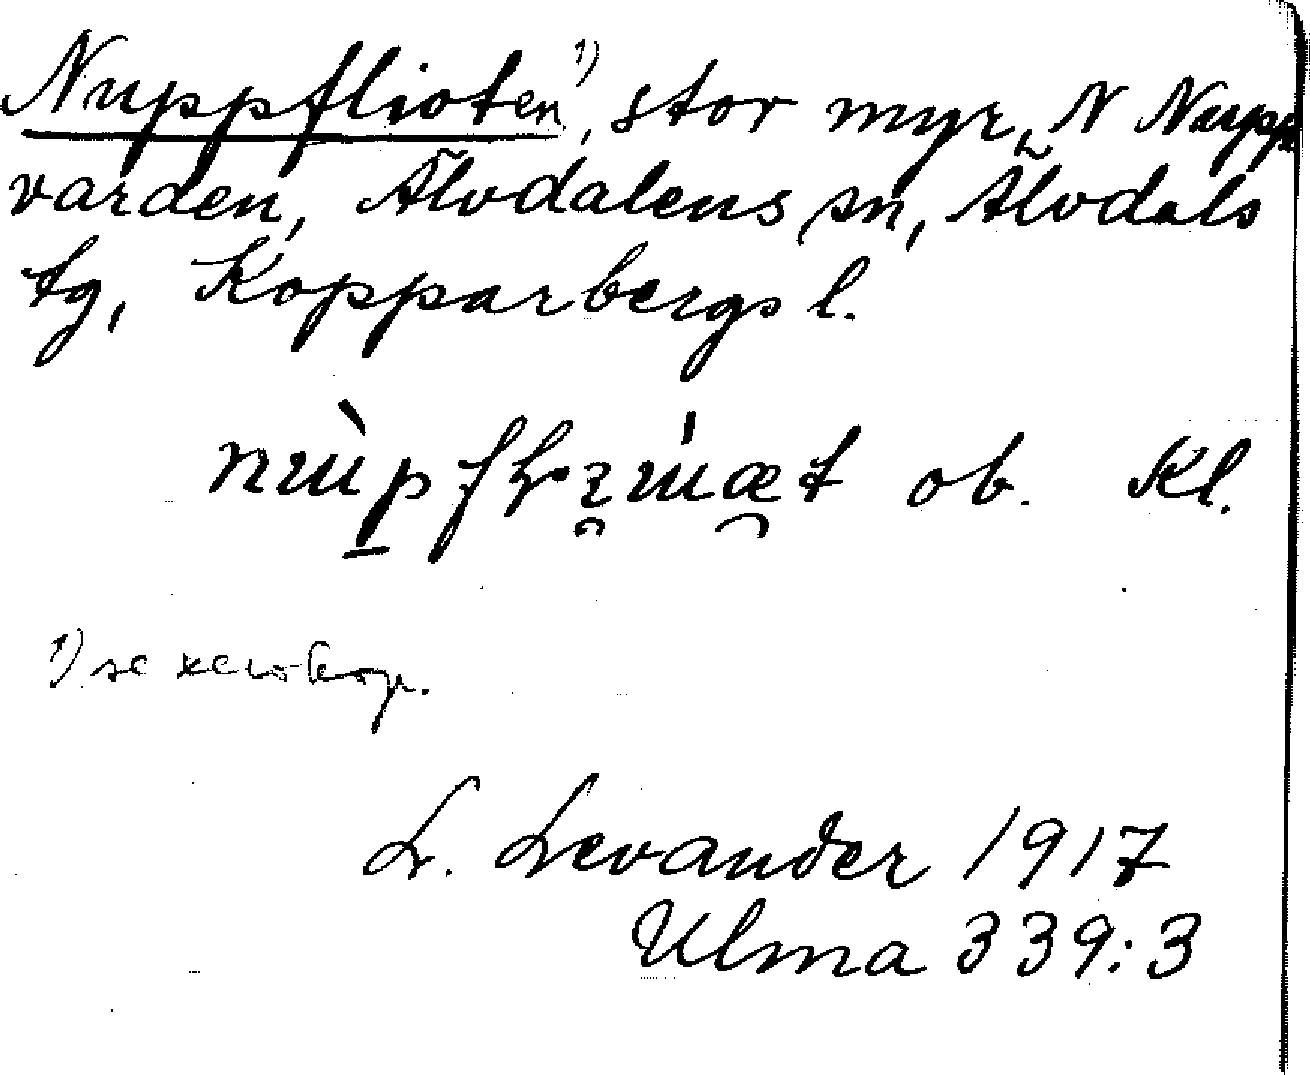 Nuppflioten¹⁾, stor myr, N Nupp
varden, Älvdalens sn, Älvdals
tg, Kopparbergs l.
ob. Kl.
¹⁾ se xerokop.
L. Levander 1917
Ulma 339:3